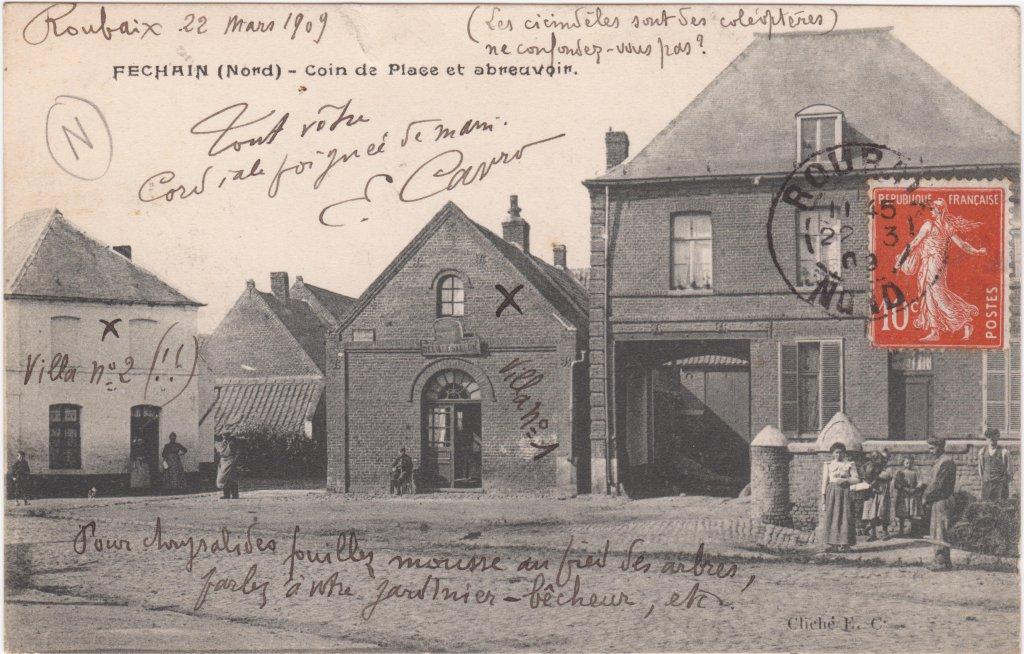 Roubaix 22 Mars 1909
(Les cicindèles sont des coléoptères)
ne confondez-vous pas?
FECHAIN (Nord) - Coin de Place et abreuvoir.
N
Tout vôtre
Cordiale poignée de main.
E. Cavro
ROUBAIX
11 45
22 3
09
NORD
RÉPUBLIQUE FRANÇAISE
10c
POSTES
X
X
Villa nº 2 (!!)
Villa nº 1
Pour chrysalides fouillez mousse au pied des arbres,
parlez à votre jardinier-bêcheur, etc.
Cliché E. C.